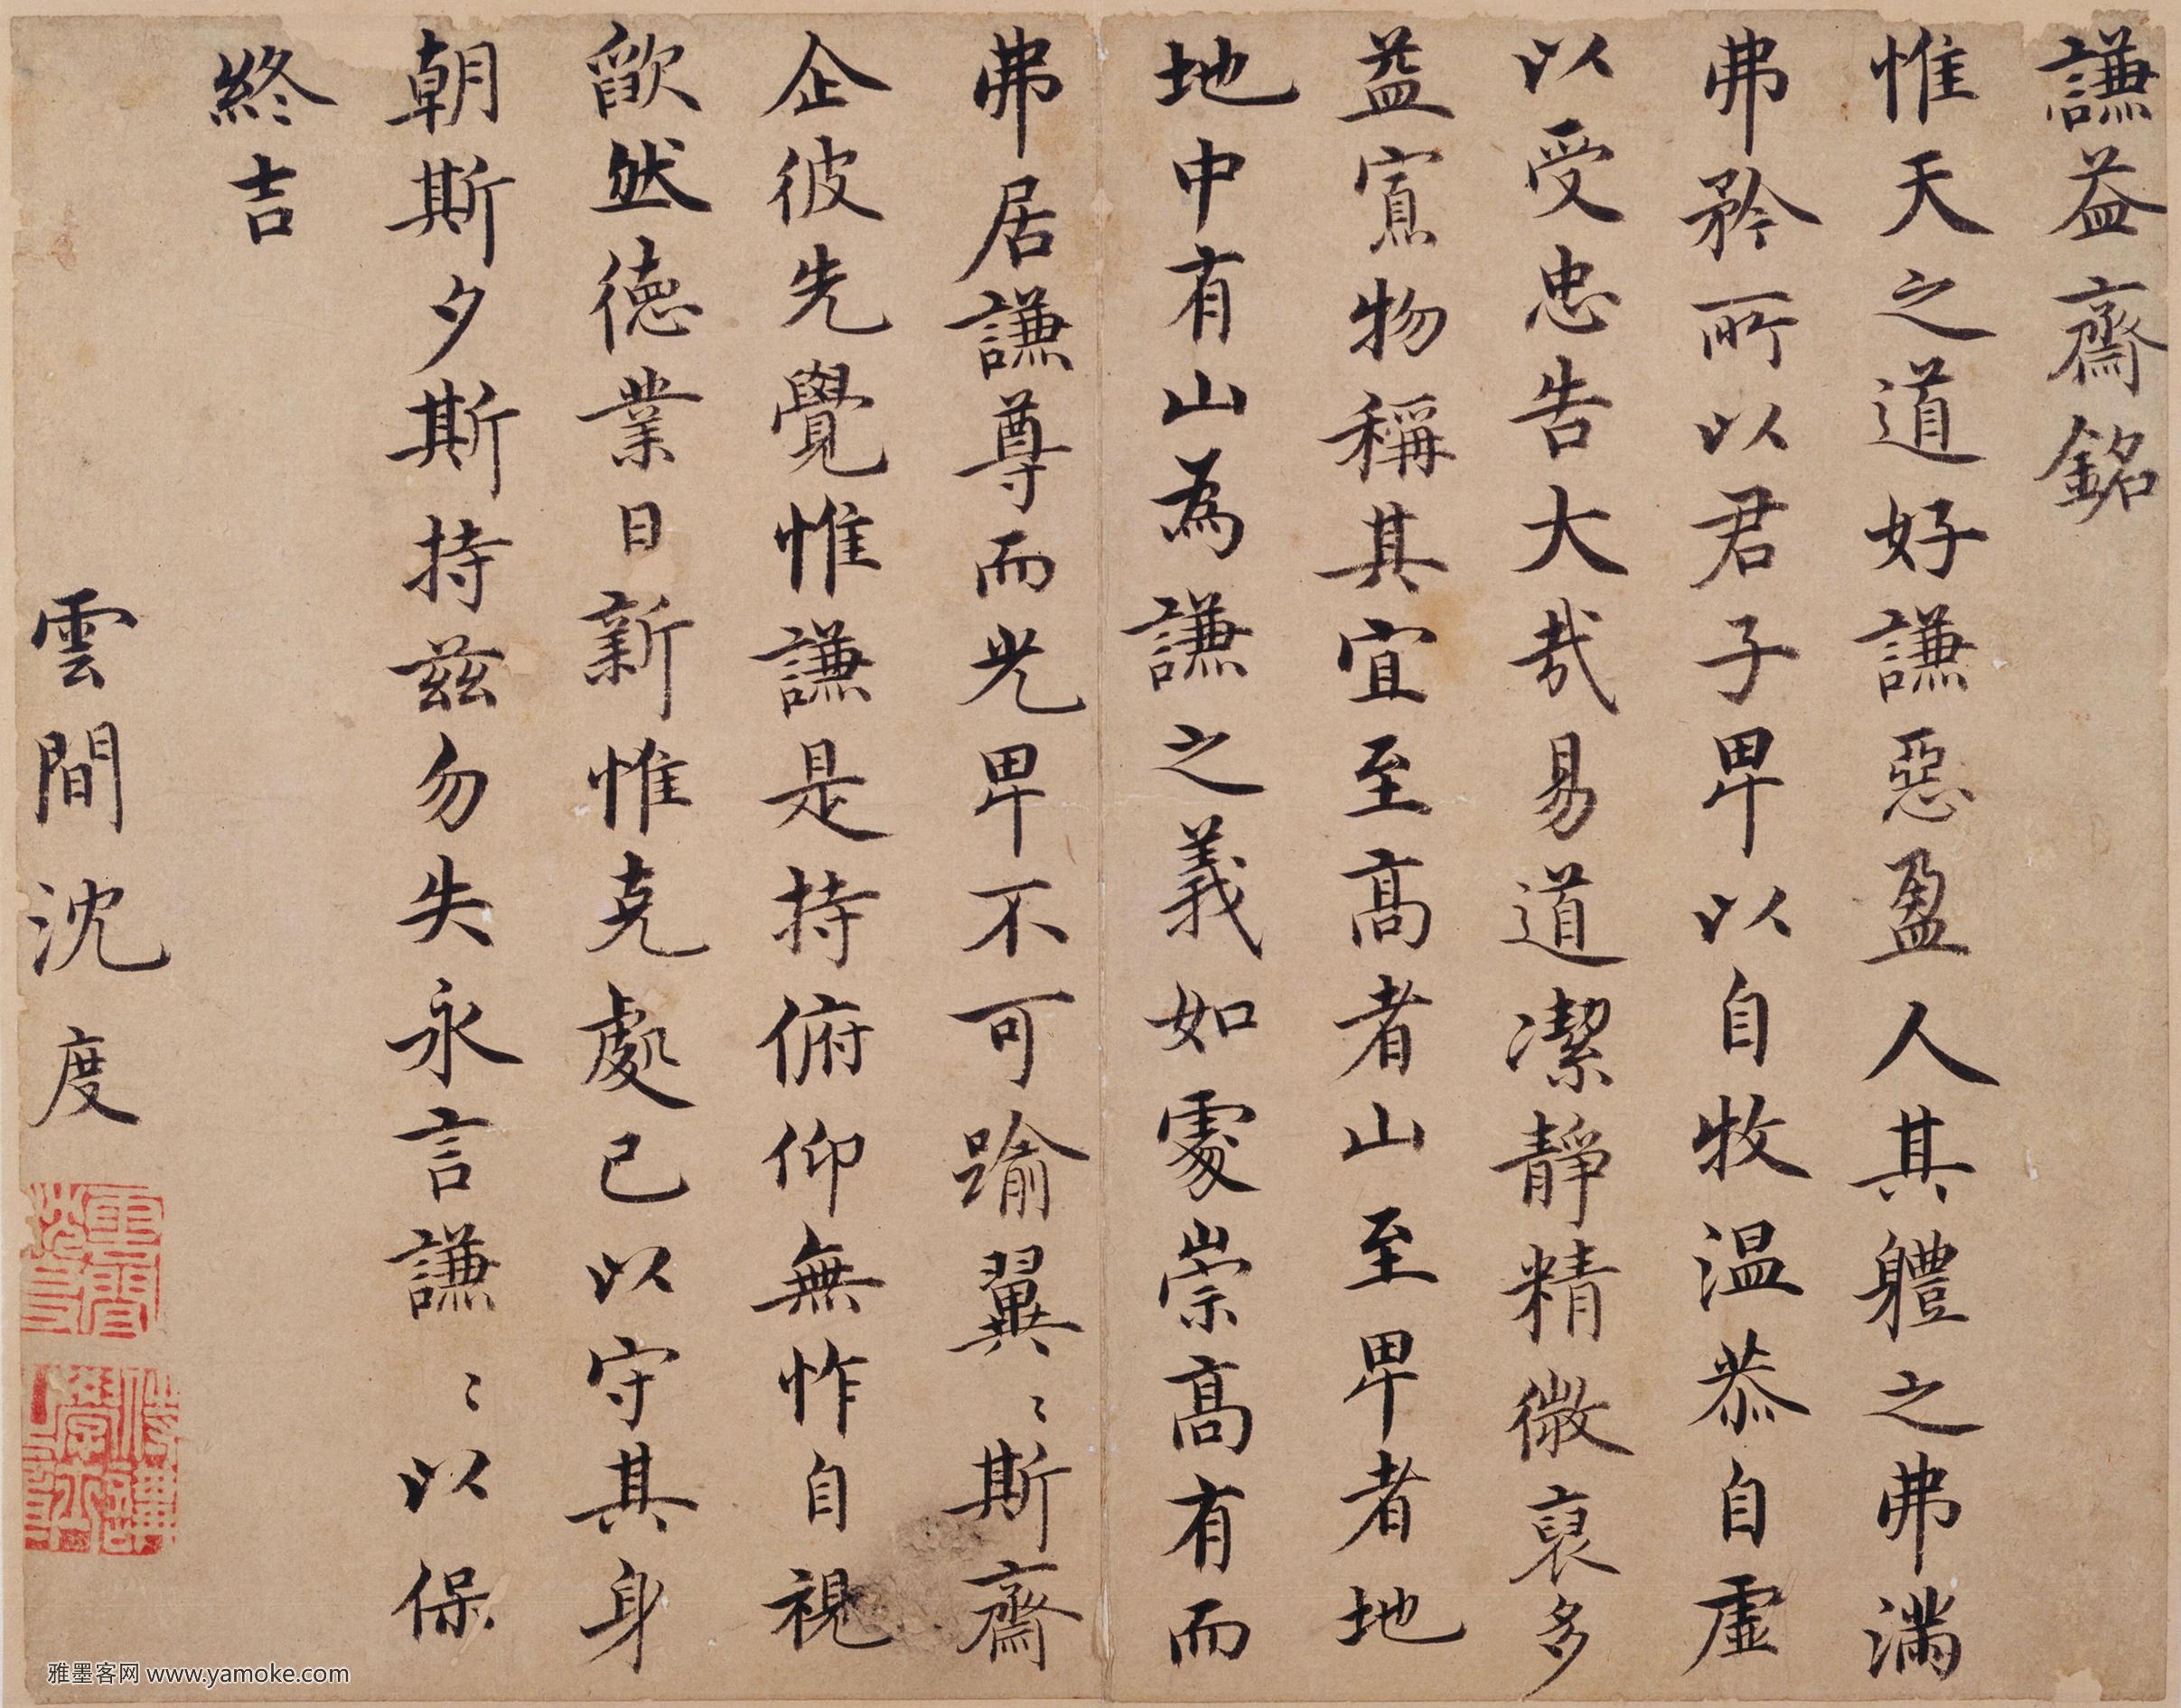 謙益齋銘
惟天之道好謙惡盈人其軆之弗滿
弗矜所以君子卑以自牧温恭自虛
以受忠告大哉易道潔靜精微裒多
益寡物稱其宜至高者山至卑者地
地中有山為謙之義如處崇高有而
弗居謙尊而光卑不可踰翼〻斯齋
企彼先覺惟謙是持俯仰無怍自視
歉然德業日新惟克處己以守其身
朝斯夕斯持茲勿失永言謙〻以保
終吉
雲間沈度
雅墨客网 www.yamoke.com